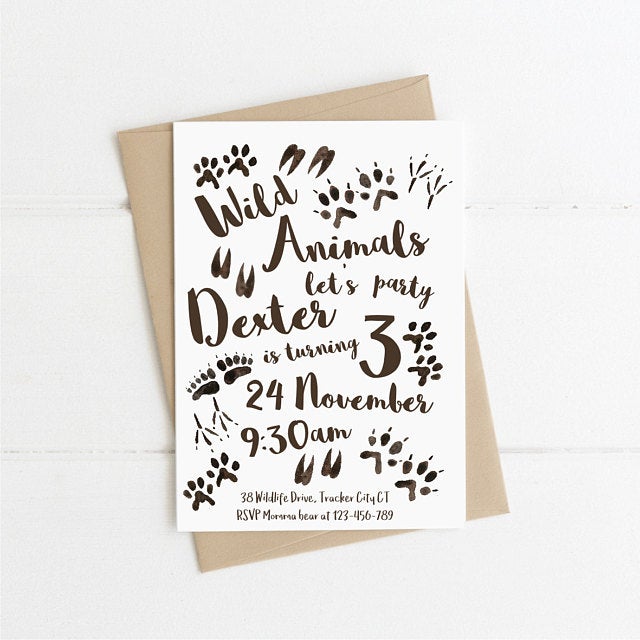 Wild
Animals
let's party
Dexter
is turning 3
24 November
9:30am
38 Wildlife Drive, Tracker City CT
RSVP Momma bear at 123-456-789